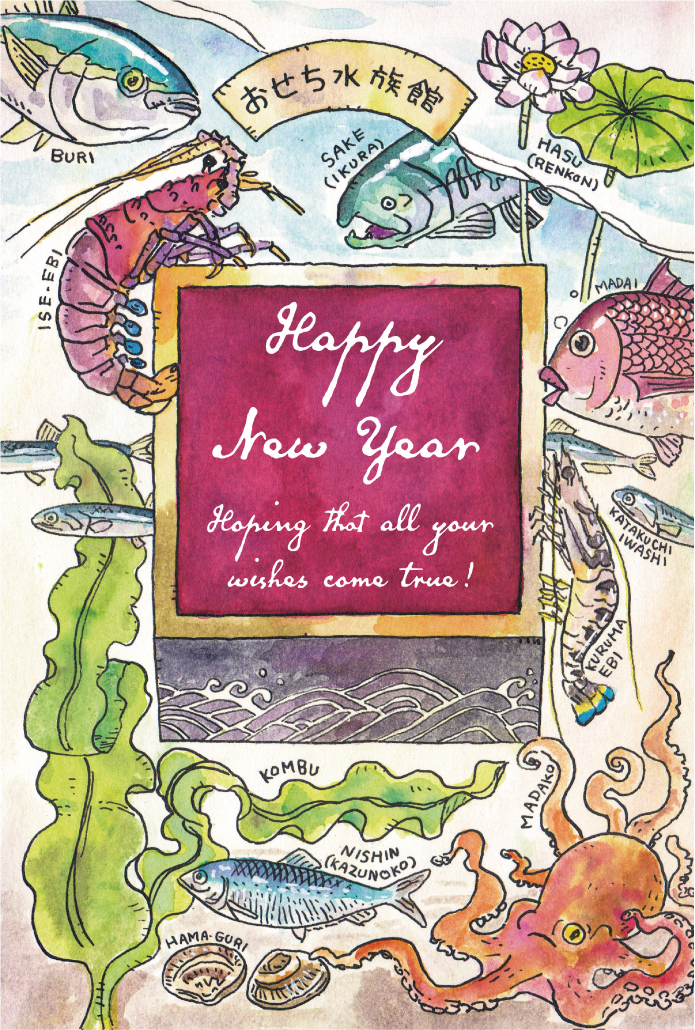 おせち水族館
BURI
SAKE
(IKURA)
HASU
(RENKON)
ISE-EBI
MADAI
Happy
New Year
Hoping that all your
wishes come true!
KATAKUCHI
IWASHI
KURUMA
EBI
KOMBU
MADAKO
NISHIN
(KAZUNOKO)
HAMA-GURI